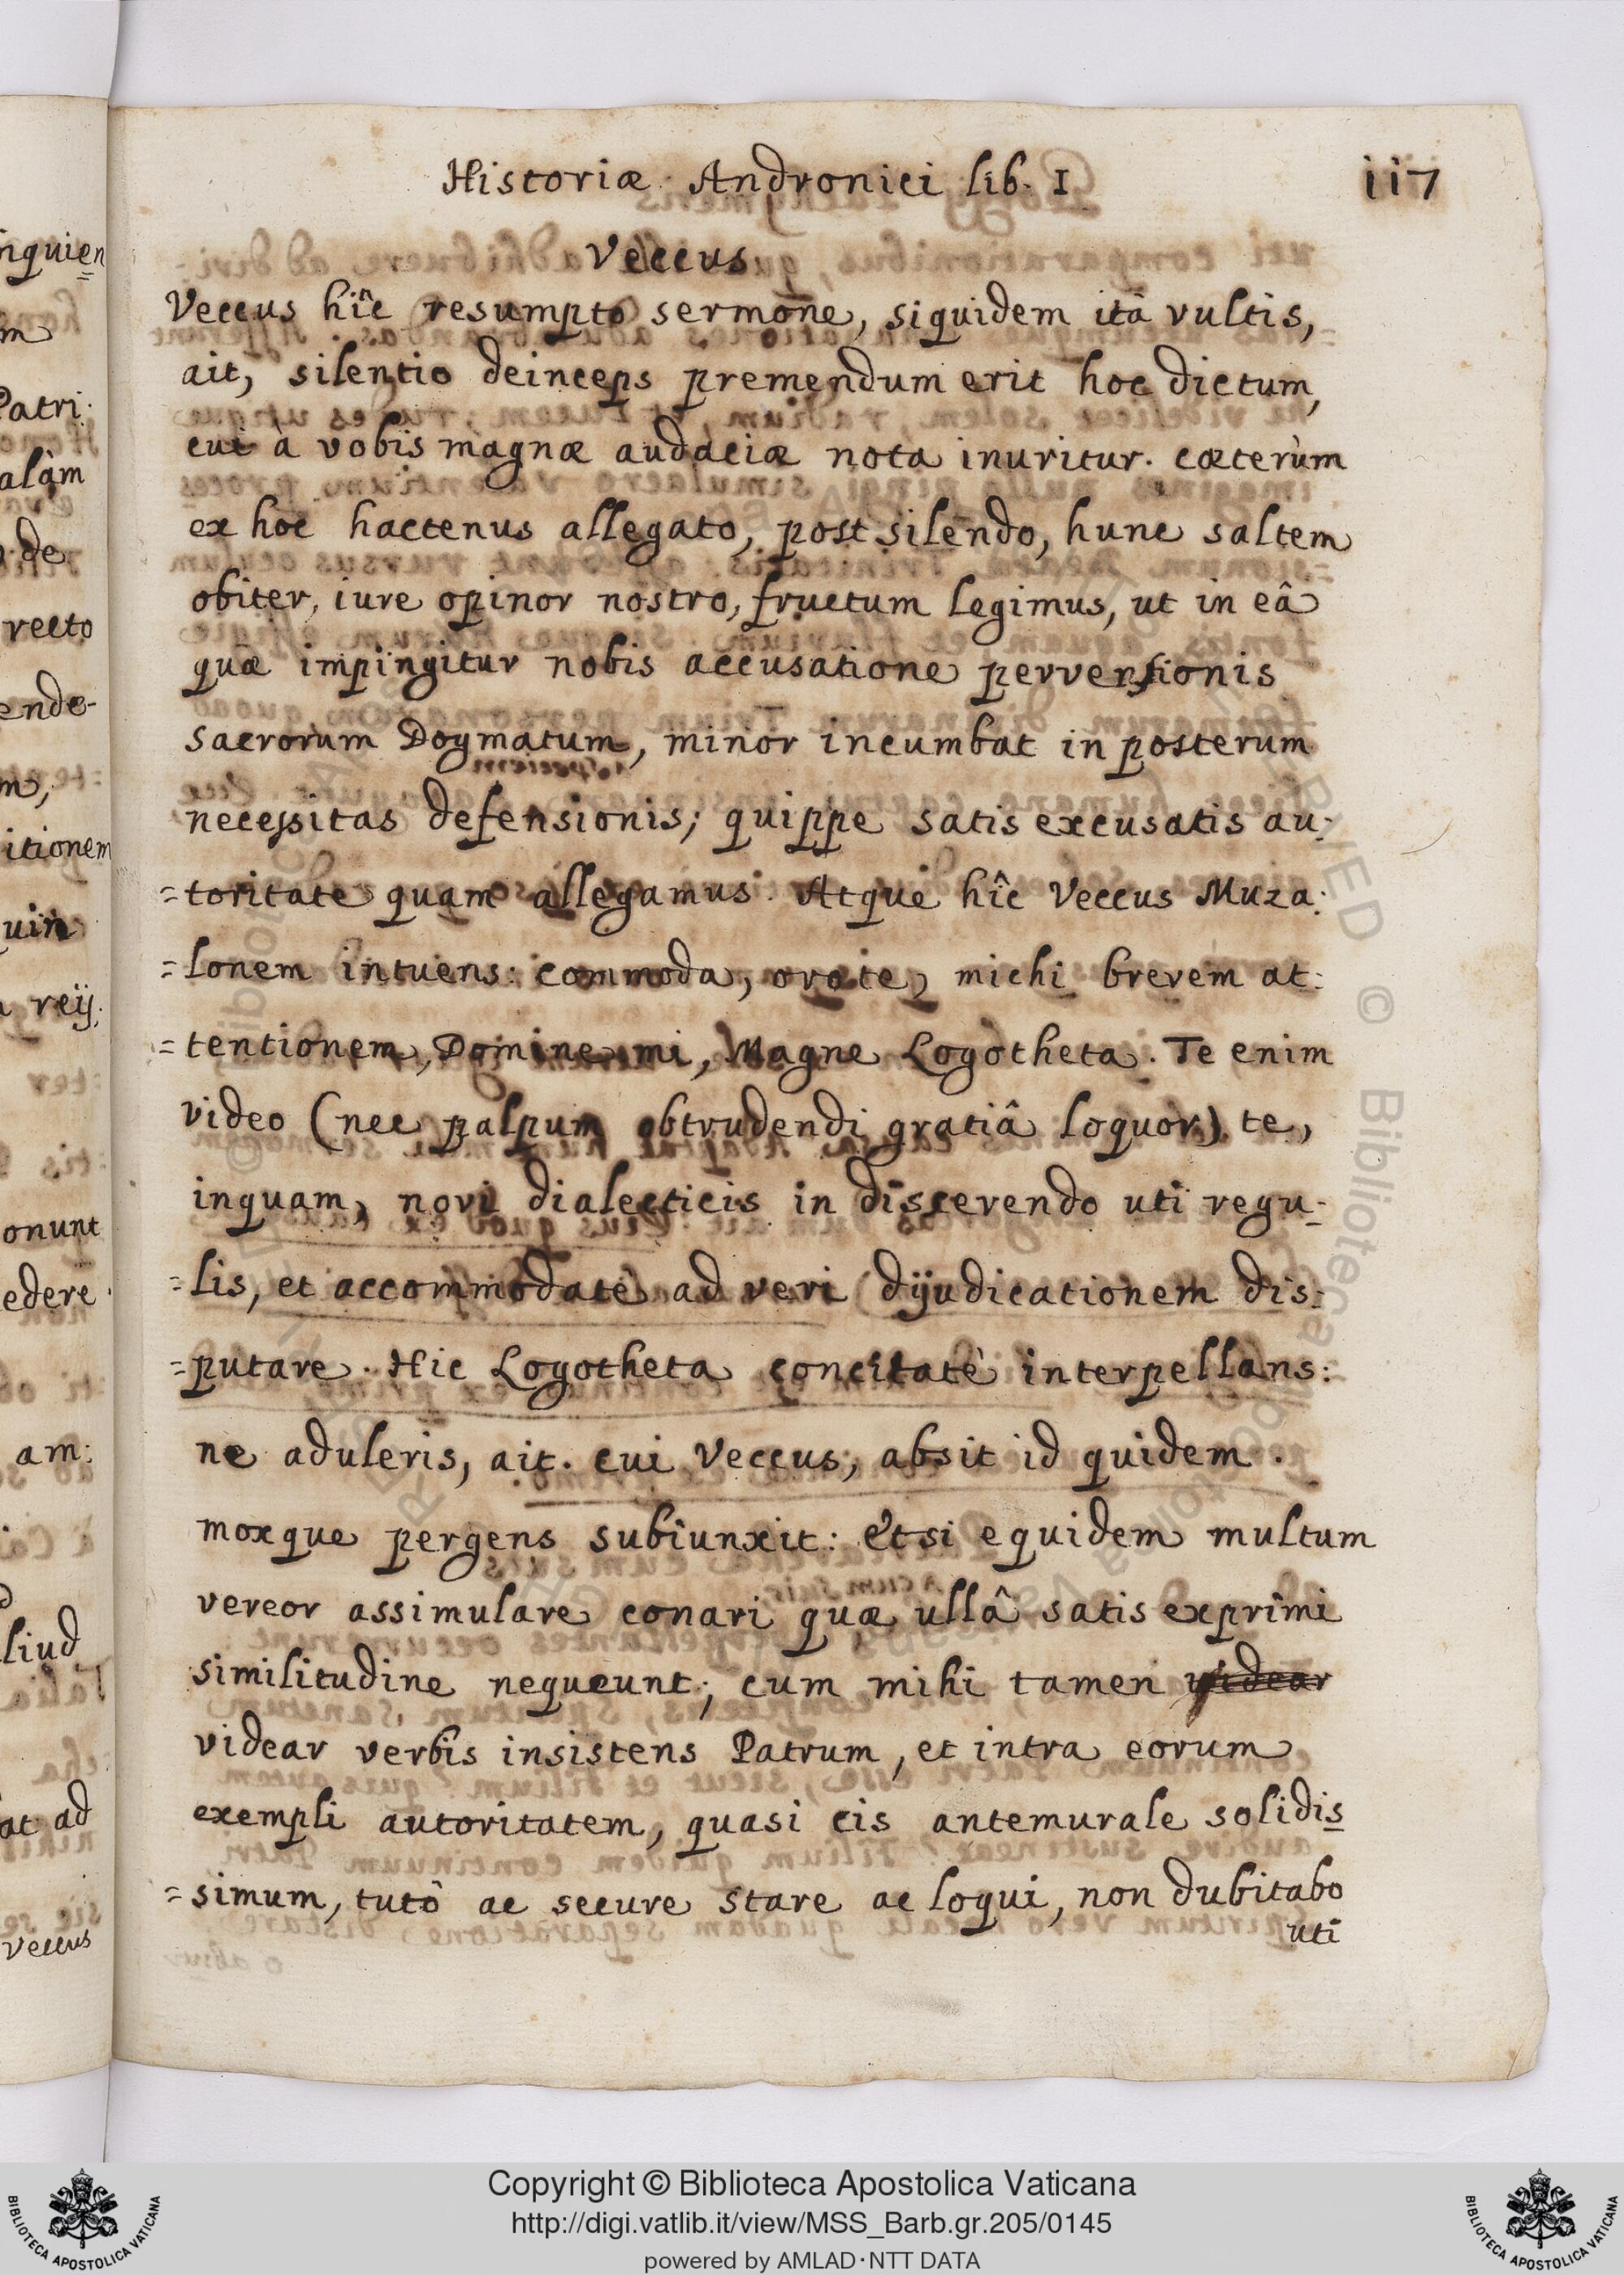 Historiæ Andronici lib. I
117
Veccus
Veccus hîc resumpto sermone, siquidem ità vultis,
ait, silentio deinceps premendum erit hoc dictum,
cui à vobis magnæ audaciæ nota inuritur. cæterùm
ex hoc hactenus allegato, post silendo, hunc saltem
obiter, iure opinor nostro, fructum legimus, ut in eâ
quæ impingitur nobis accusatione perversionis
sacrorum Dogmatum, minor incumbat in posterum
necessitas defensionis; quippe satis excusatis au-
=toritate quam allegamus. Atque hîc Veccus Muza-
=lonem intuens: commoda, orote, michi brevem at-
=tentionem, Domine mi, Magne Logotheta. Te enim
video (nec palpum obtrudendi gratiâ loquor) te,
inquam, novi dialecticis in disserendo uti regu-
=lis, et accommodatè ad veri dijudicationem dis-
=putare. Hic Logotheta concitatè interpellans:
ne aduleris, ait. cui Veccus, absit id quidem.
moxque pergens subiunxit: etsi equidem multum
vereor assimulare conari quæ ullâ satis exprimi
similitudine nequeunt; cum mihi tamen videar
videar verbis insistens Patrum, et intra eorum
exempli autoritatem, quasi cis antemurale solidis
=simum, tutô ac secure stare ac loqui, non dubitabo
uti
inquien
m
Patri:
alàm
de
recto
ende-
m,
itionem
quin
reij:
onunt
edere
am:
liud
at ad
Veccus
© Biblioteca Apostolica Vaticana
Copyright © Biblioteca Apostolica Vaticana
http://digi.vatlib.it/view/MSS_Barb.gr.205/0145
powered by AMLAD·NTT DATA
BIBLIOTECA APOSTOLICA VATICANA
BIBLIOTECA APOSTOLICA VATICANA